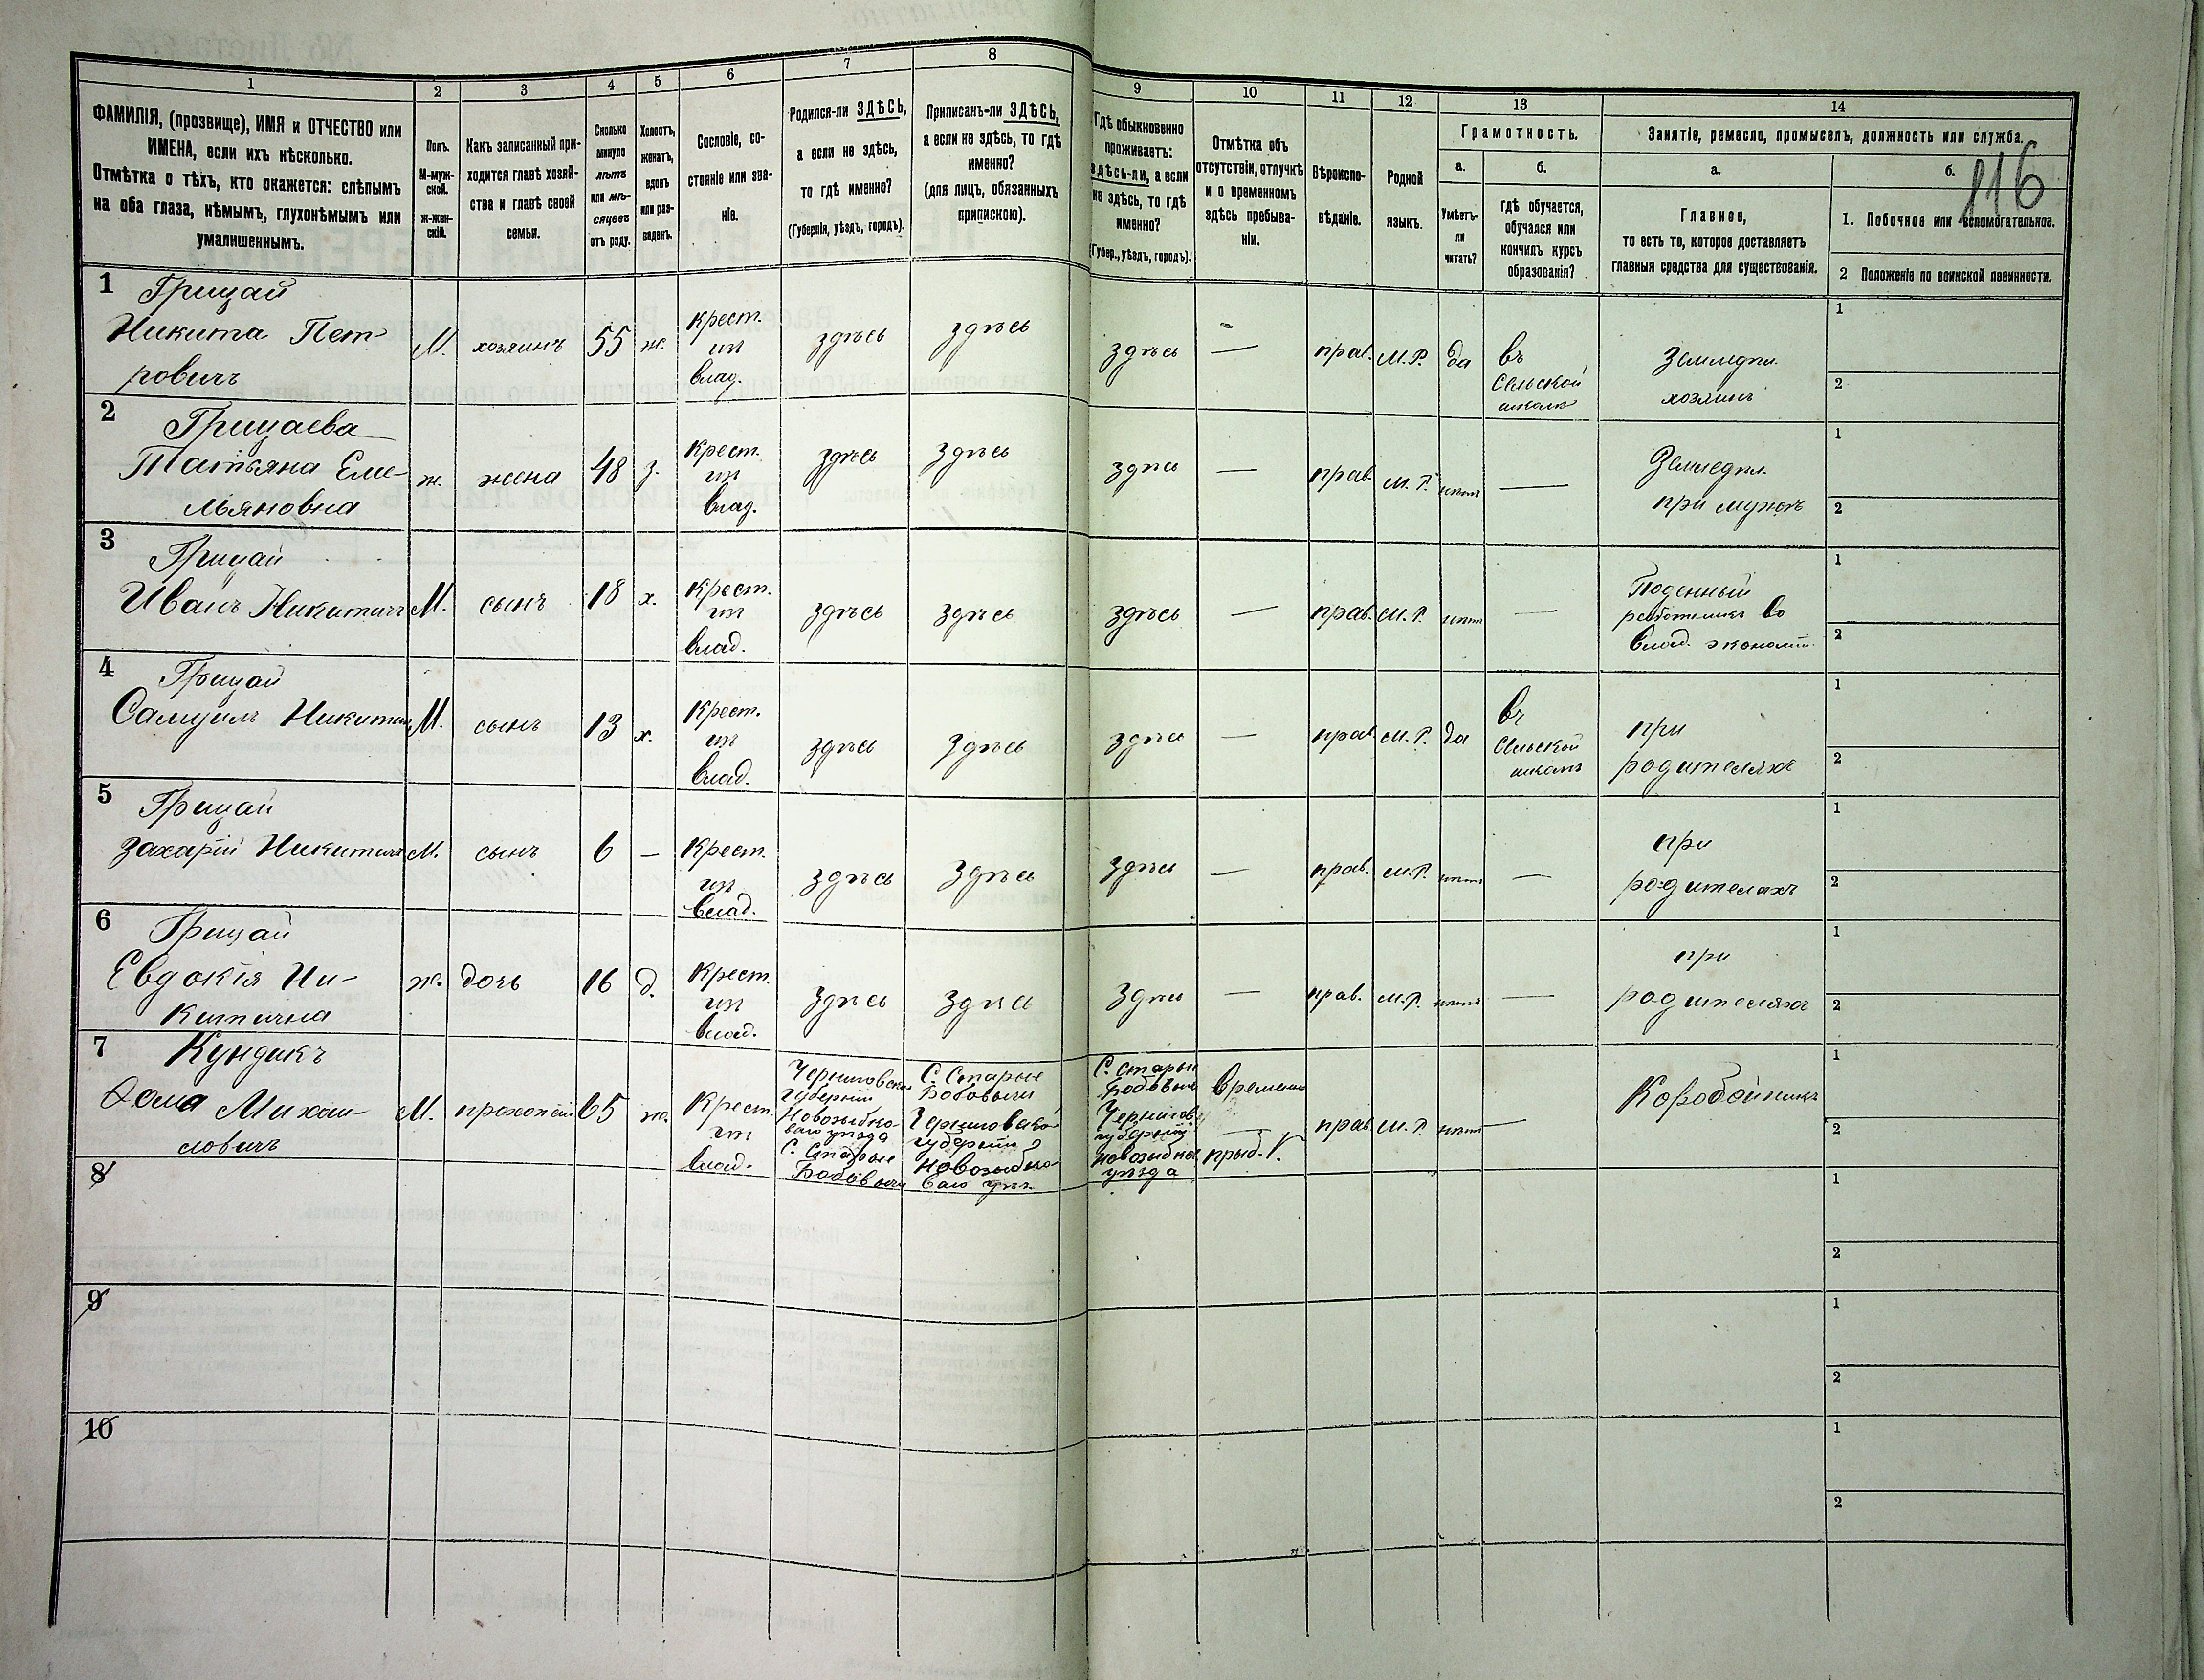 116
1
2
3
4
5
6
7
8
9
10
11
12
13
14
ФАМИЛІЯ, (прозвище), ИМЯ и ОТЧЕСТВО или
ИМЕНА, если ихъ нѣсколько.
Отмѣтка о тѣхъ, кто окажется: слѣпымъ
на оба глаза, нѣмымъ, глухонѣмымъ или
умалишеннымъ.
Полъ.
М-муж-
ской.
ж-жен-
скій.
Какъ записанный при-
ходится главѣ хозяй-
ства и главѣ своей
семьи.
Сколько
минуло
лѣтъ
или мѣ-
сяцевъ
отъ роду.
Холостъ,
женатъ,
вдовъ
или раз-
веденъ.
Сословіе, со-
стояніе или зва-
ніе.
Родился-ли ЗДѢСЬ,
а если не здѣсь,
то гдѣ именно?
(Губернія, уѣздъ, городъ).
Приписанъ-ли ЗДѢСЬ,
а если не здѣсь, то гдѣ
именно?
(для лицъ, обязанныхъ
припискою).
Гдѣ обыкновенно
проживаетъ:
здѣсь-ли, а если
не здѣсь, то гдѣ
именно?
(Губер., уѣздъ, городъ).
Отмѣтка объ
отсутствіи, отлучкѣ
и о временномъ
здѣсь пребыва-
ніи.
Вѣроиспо-
вѣданіе.
Родной
языкъ.
Грамотность.
а.
Умѣетъ-
ли
читать?
б.
гдѣ обучается,
обучался или
кончилъ курсъ
образованія?
Занятіе, ремесло, промыселъ, должность или служба.
а.
Главное,
то есть то, которое доставляетъ
главныя средства для существованія.
б.
1. Побочное или вспомогательное.
2 Положеніе по воинской повинности.
1
Грицай
Никита Пет-
ровичъ
М.
хозяинъ
55
ж.
крест.
изъ
влад.
здѣсь
здѣсь
здѣсь
—
прав.
М.Р.
да
въ
Сельской
школѣ
Земледѣл.
хозяинъ
1
2
2
Грицаева
Татьяна Еме-
льяновна
ж.
жена
48
з.
Крест.
изъ
влад.
здѣсь
здѣсь
здѣсь
—
прав.
М.Р.
нѣтъ
—
Земледѣл.
при мужѣ
1
2
3
Грицай
Иванъ Никитичъ
М.
сынъ
18
х.
Крест.
изъ
влад.
здѣсь
здѣсь
здѣсь
—
прав.
М.Р.
нѣтъ
—
Поденный
работникъ во
влад. экономіи
1
2
4
Грицай
Самуилъ Никитичъ
М.
сынъ
13
х.
Крест.
изъ
влад.
здѣсь
здѣсь
здѣсь
—
прав.
М.Р.
да
въ
Сельской
школѣ
при
родителяхъ
1
2
5
Грицай
Захарій Никитичъ
М.
сынъ
6
—
Крест.
изъ
влад.
здѣсь
здѣсь
здѣсь
—
прав.
М.Р.
нѣтъ
—
при
родителахъ
1
2
6
Грицай
Евдокія Ни-
китична
ж.
дочь
16
д.
Крест.
изъ
влад.
здѣсь
здѣсь
здѣсь
—
прав.
М.Р.
нѣтъ
—
при
родителяхъ
1
2
7
Кундикъ
Ѳома Михаи-
ловичъ
М.
прохожій
65
ж.
Крест.
изъ
влад.
Черниговской
губерніи
Новозыбко-
ваго уѣзда
С. Старые
Бобовичи
С. Старые
Бобовичи
Черниговской
губерніи
Новозыбко-
ваго уѣз.
С. Старые
Бобовичи
Чернігов.
губерніи
Новозыбков
уѣзда
времен.
—
прав
М.Р.
нѣтъ
—
Коробейникъ
1
2
8
1
2
9
1
2
10
1
2